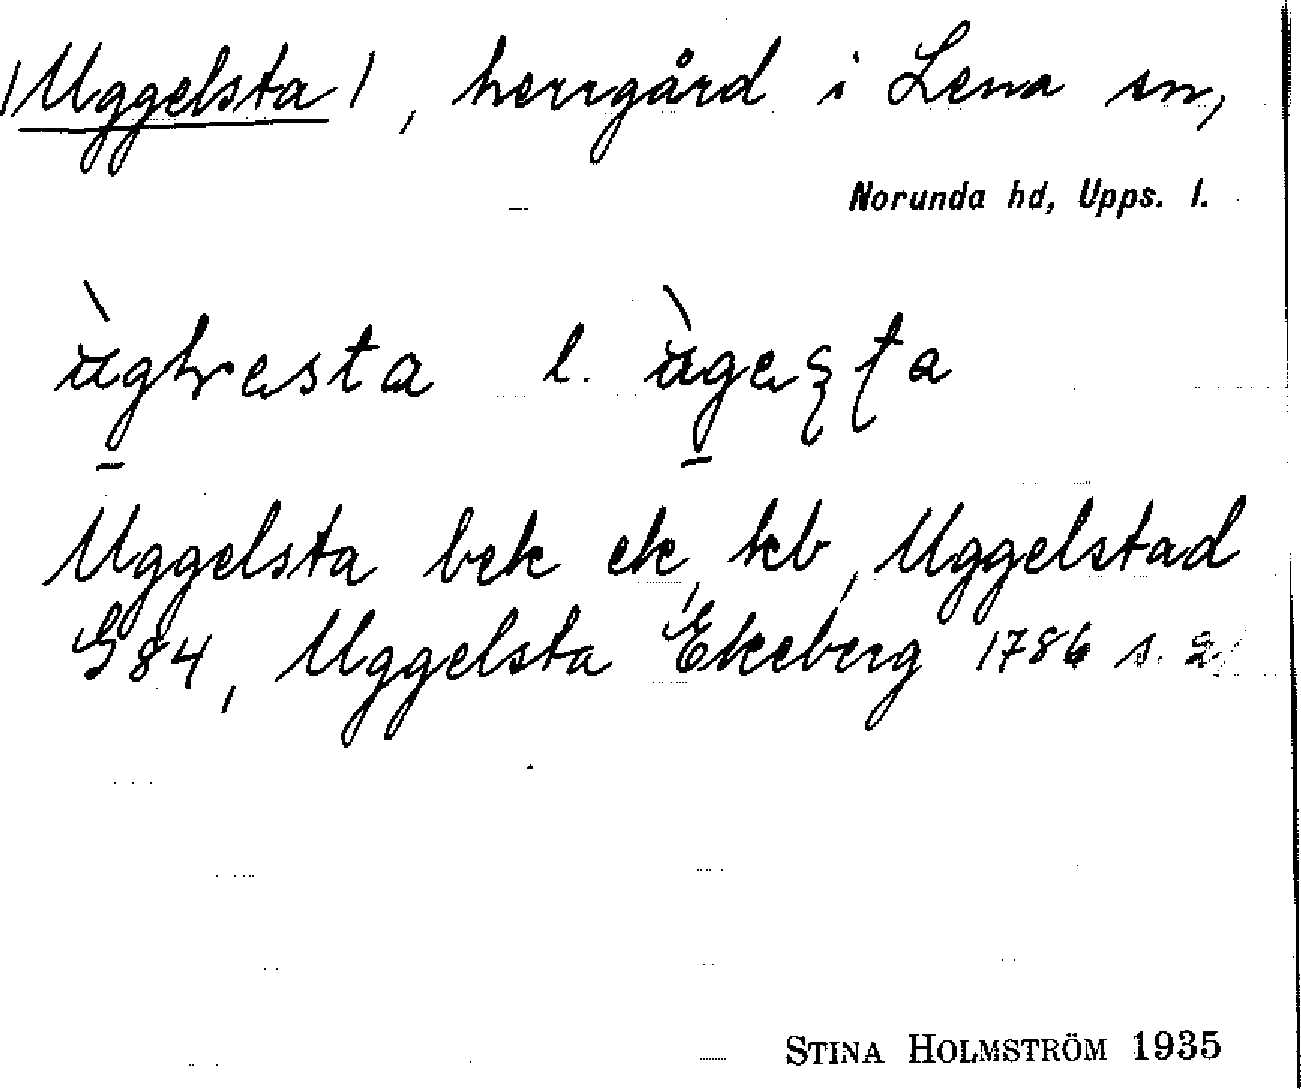 /Uggelsta/, herrgård i Lena sn,
Norunda hd, Upps. l.
l.
Uggelsta bek ek, kb, Uggelstad
G 84, Uggelsta Ekeberg 1786 s.
STINA HOLMSTRÖM 1935